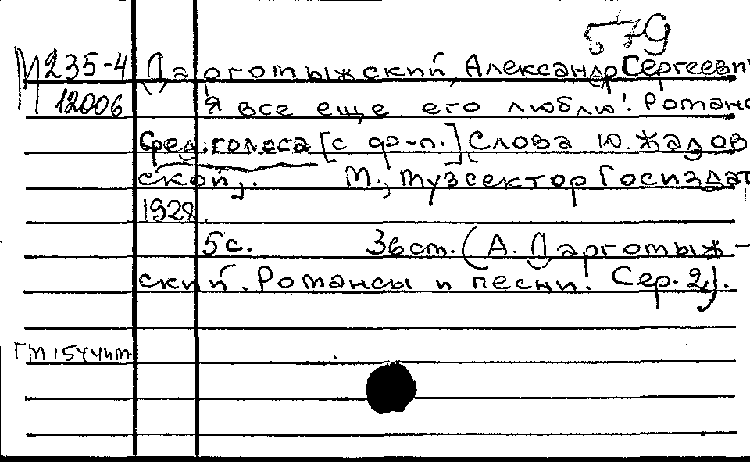 579
М235-4 Даргомыжский, Александр Сергеевич
12006 Я все еще его люблю! Романс
сред. голоса [с ф-п.] Слова Ю. Жадов
ской. М., Музсектор Госиздат
1928.
5с. 36 см. (А. Даргомыж-
ский. Романсы и песни. Сер. 2).